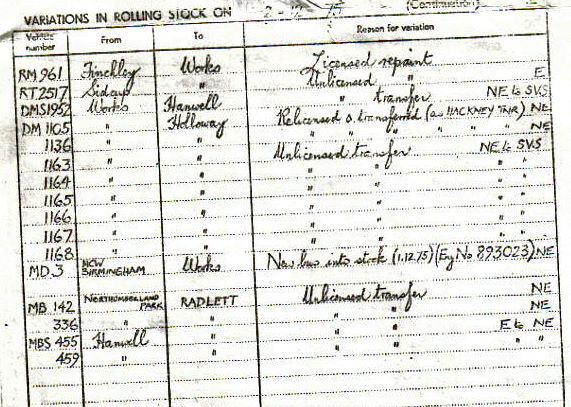 VARIATIONS IN ROLLING STOCK ON 2 - 12 - 75 (Continuation)
Vehicle number From To Reason for variation
RM 961 Finchley Works Licensed repaint
RT2517 Sidcup " Unlicensed " E
DMS1952 Works Hanwell " transfer NE to SVS
DM 1105 " Holloway Relicensed & transferred (as HACKNEY TNR) NE
1136 " " " " " " " NE
1163 " " Unlicensed transfer NE to SVS
1164 " " " " " "
1165 " " " " " "
1166 " " " " " "
1167 " " " " " "
1168 " " " " " "
MD.3 MCW BIRMINGHAM Works New bus into stock (1.12.75) (Eng No 893023) NE
MB 142 NORTHUMBERLAND PARK RADLETT Unlicensed transfer NE
336 " " " " NE
MBS 455 Hanwell " " " E to NE
459 " " " " " "